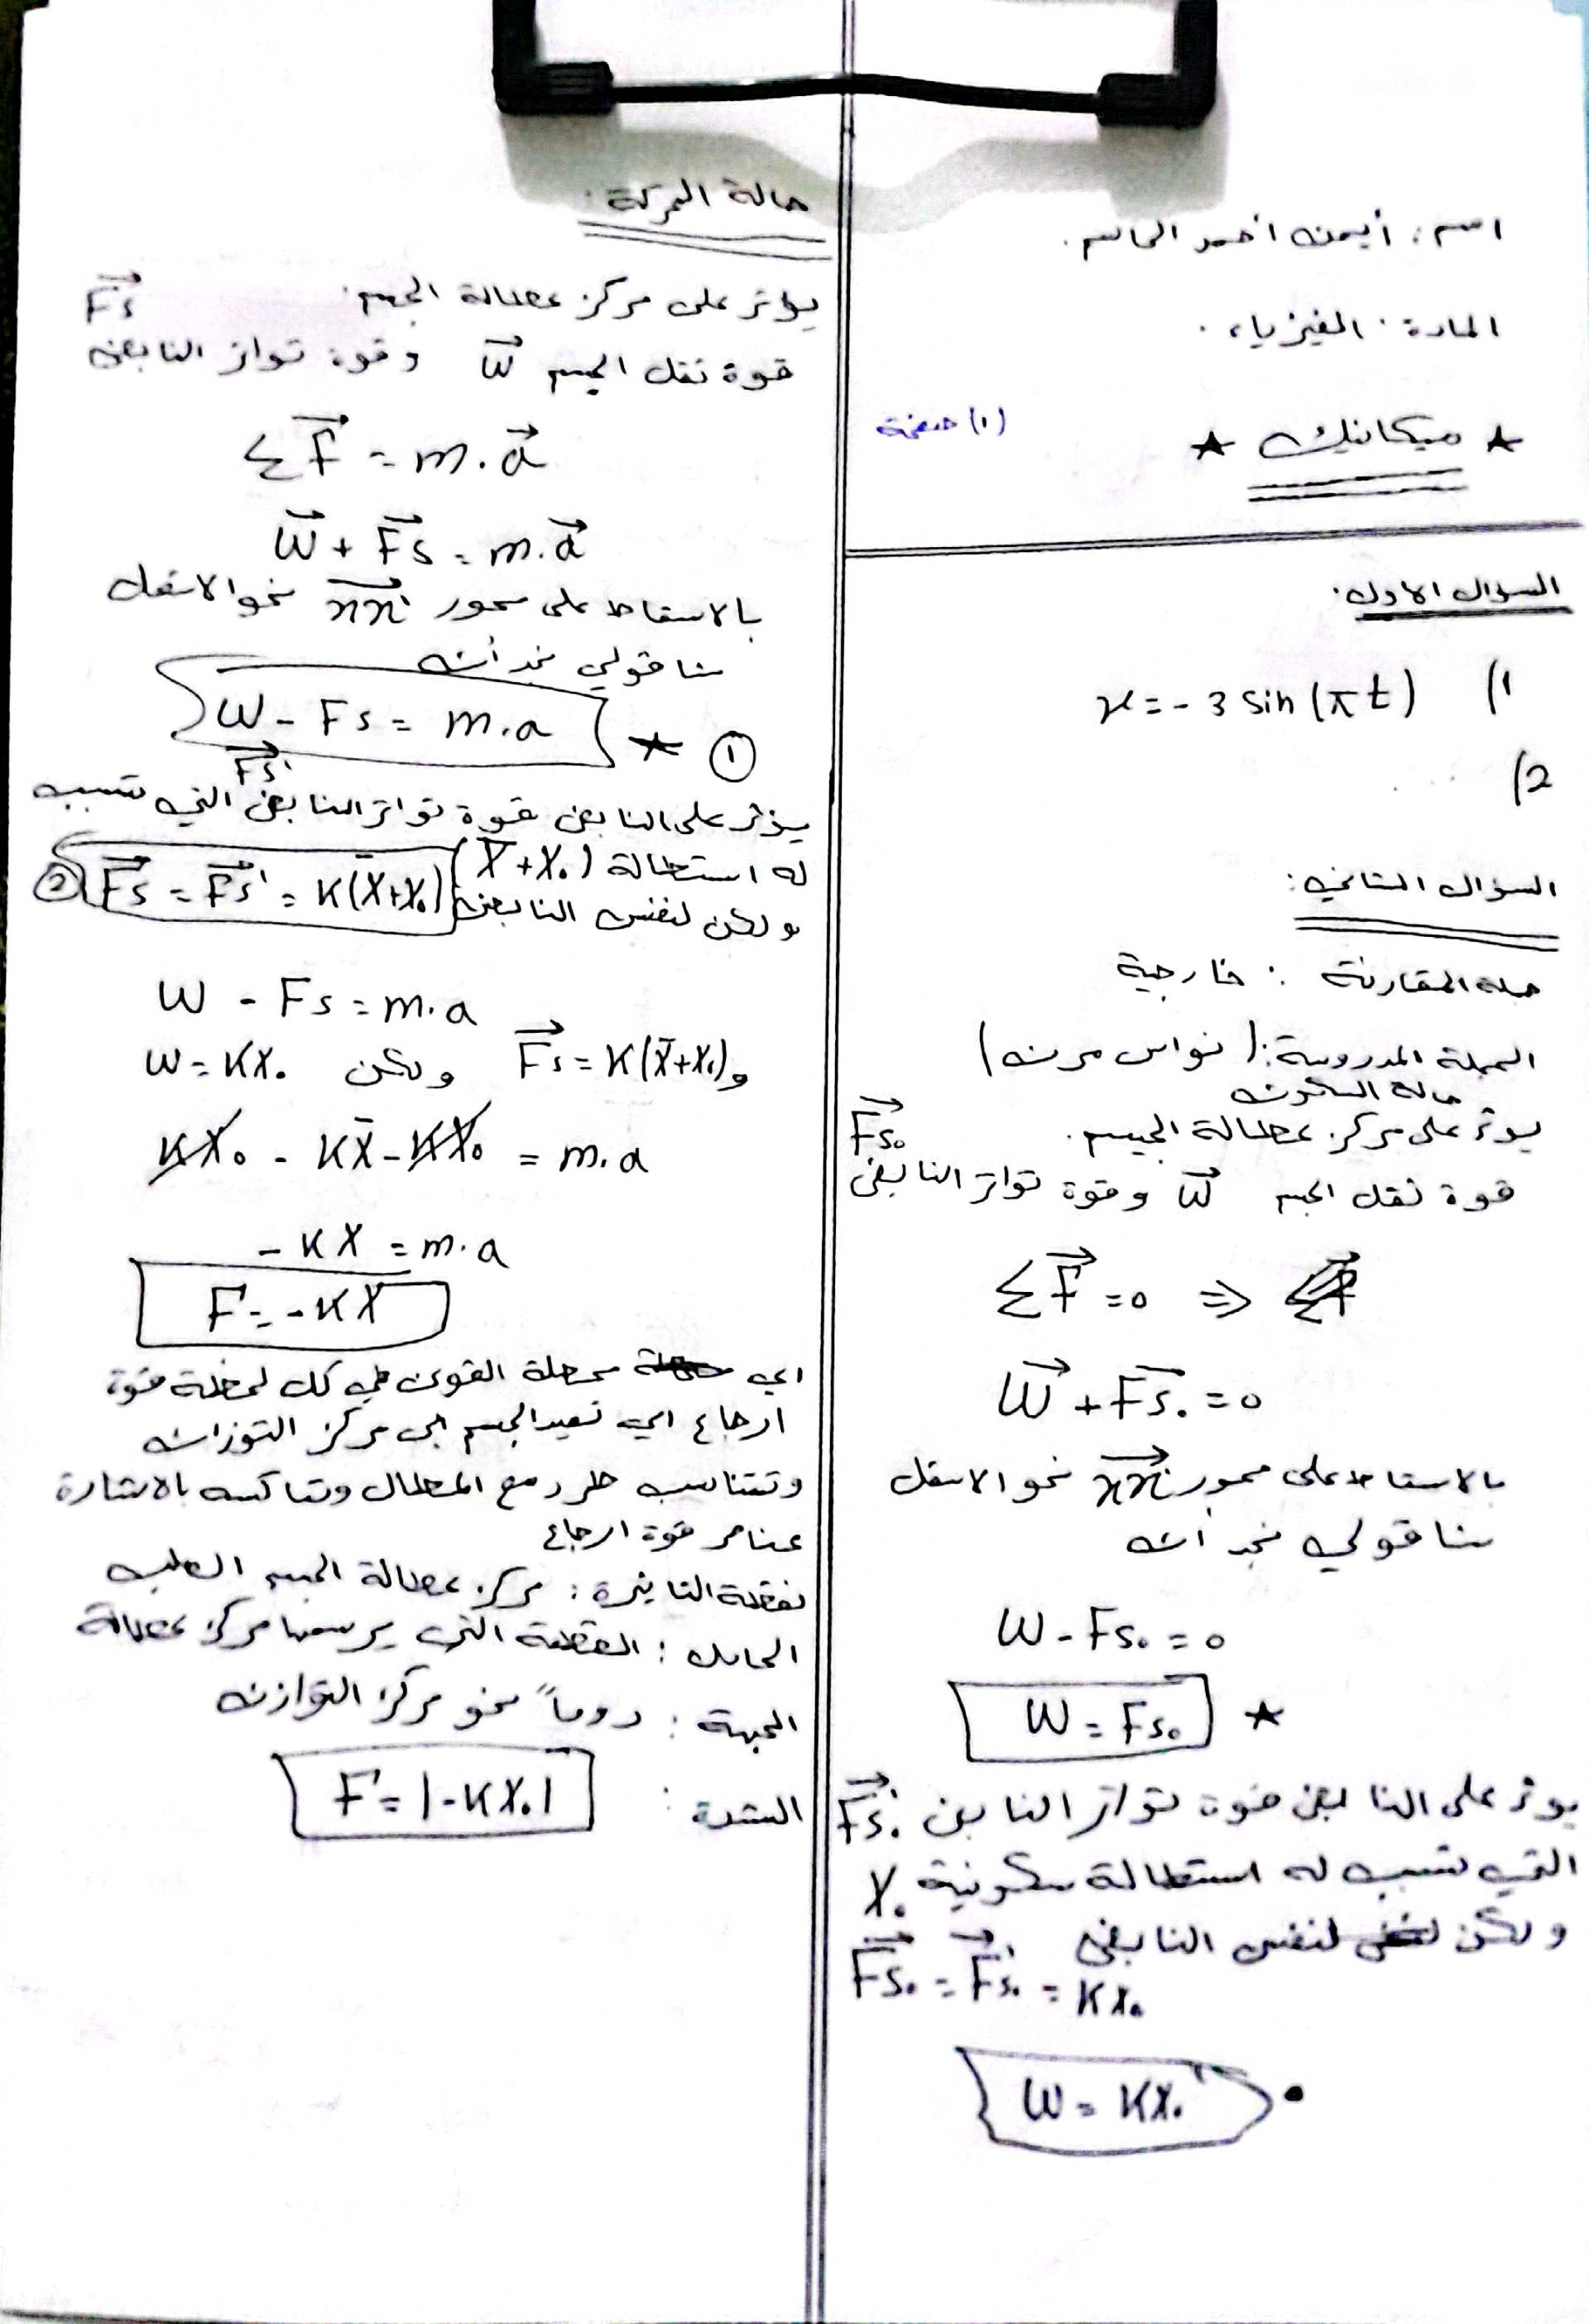 اسم: أيمن احمد الجاسم.
المادة: الفيزياء.
★ ميكانيك ★
(١) صفحة
السؤال الاول:
1) x = - 3 sin (π t)
2)
السؤال الثاني:
جملة المقارنة: خارجية
الجملة المدروسة: (نواس مرن)
حالة السكون
يؤثر على مركز عطالة الجسم.
قوة ثقل الجسم W وقوة تواتر النابض Fs₀
ΣF = 0 ⇒
W + Fs₀ = 0
بالاسقاط على محور xx' نحو الاسفل
شاقولي نجد أن
W - Fs₀ = 0
W = Fs₀ ★
يؤثر على النابض قوة تواتر النابض Fs₀'
التي تسبب له استطالة سكونية X₀
ولكن لنفس النابض
Fs₀ = Fs₀' = KX₀
W = KX₀ •
حالة الحركة:
يؤثر على مركز عطالة الجسم.
قوة ثقل الجسم W وقوة تواتر النابض Fs
ΣF = m.a
W + Fs = m.a
بالاسقاط على محور xx' نحو الاسفل
شاقولي نجد أن
W - Fs = m.a ★ ①
يؤثر على النابض قوة تواتر النابض Fs' التي تسبب
له استطالة (X̄ + X₀)
ولكن لنفس النابض Fs = Fs' = K(X̄+X₀) ②
W - Fs = m.a
و Fs = K(X̄+X₀) ولكن W = KX₀
KX₀ - KX̄ - KX₀ = m.a
- KX = m.a
F = - KX
اي محصلة القوى في كل لحظة قوة
ارجاع اي تعيد الجسم الى مركز التوزان
وتتناسب طرد مع المطال وتعاكسه بالاشارة
عناصر قوة ارجاع
نقطة التاثيرة: مركز عطالة الجسم الصلب
الحامل: القطعة التي يرسمها مركز عطالة
الجهة: دوماً نحو مركز التوازن
الشدة: F = |-KX₀|